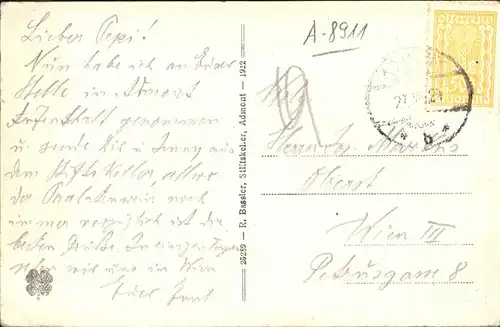 Lieber Pepi!
Nun habe ich an Euerer
Stelle in Admont
Aufenthalt genommen
u. sende Dir u. Jenny aus
dem Stiftskeller, allwo
der
noch
immer vorzüglich ist die
besten Grüße. In einigen Tagen
sehen wir uns in Wien
Euer
25289 - R. Bassler, Stiftskeller, Admont - 1922
A-8911
19
Oberst
Wien III
Petrusgasse 8
b